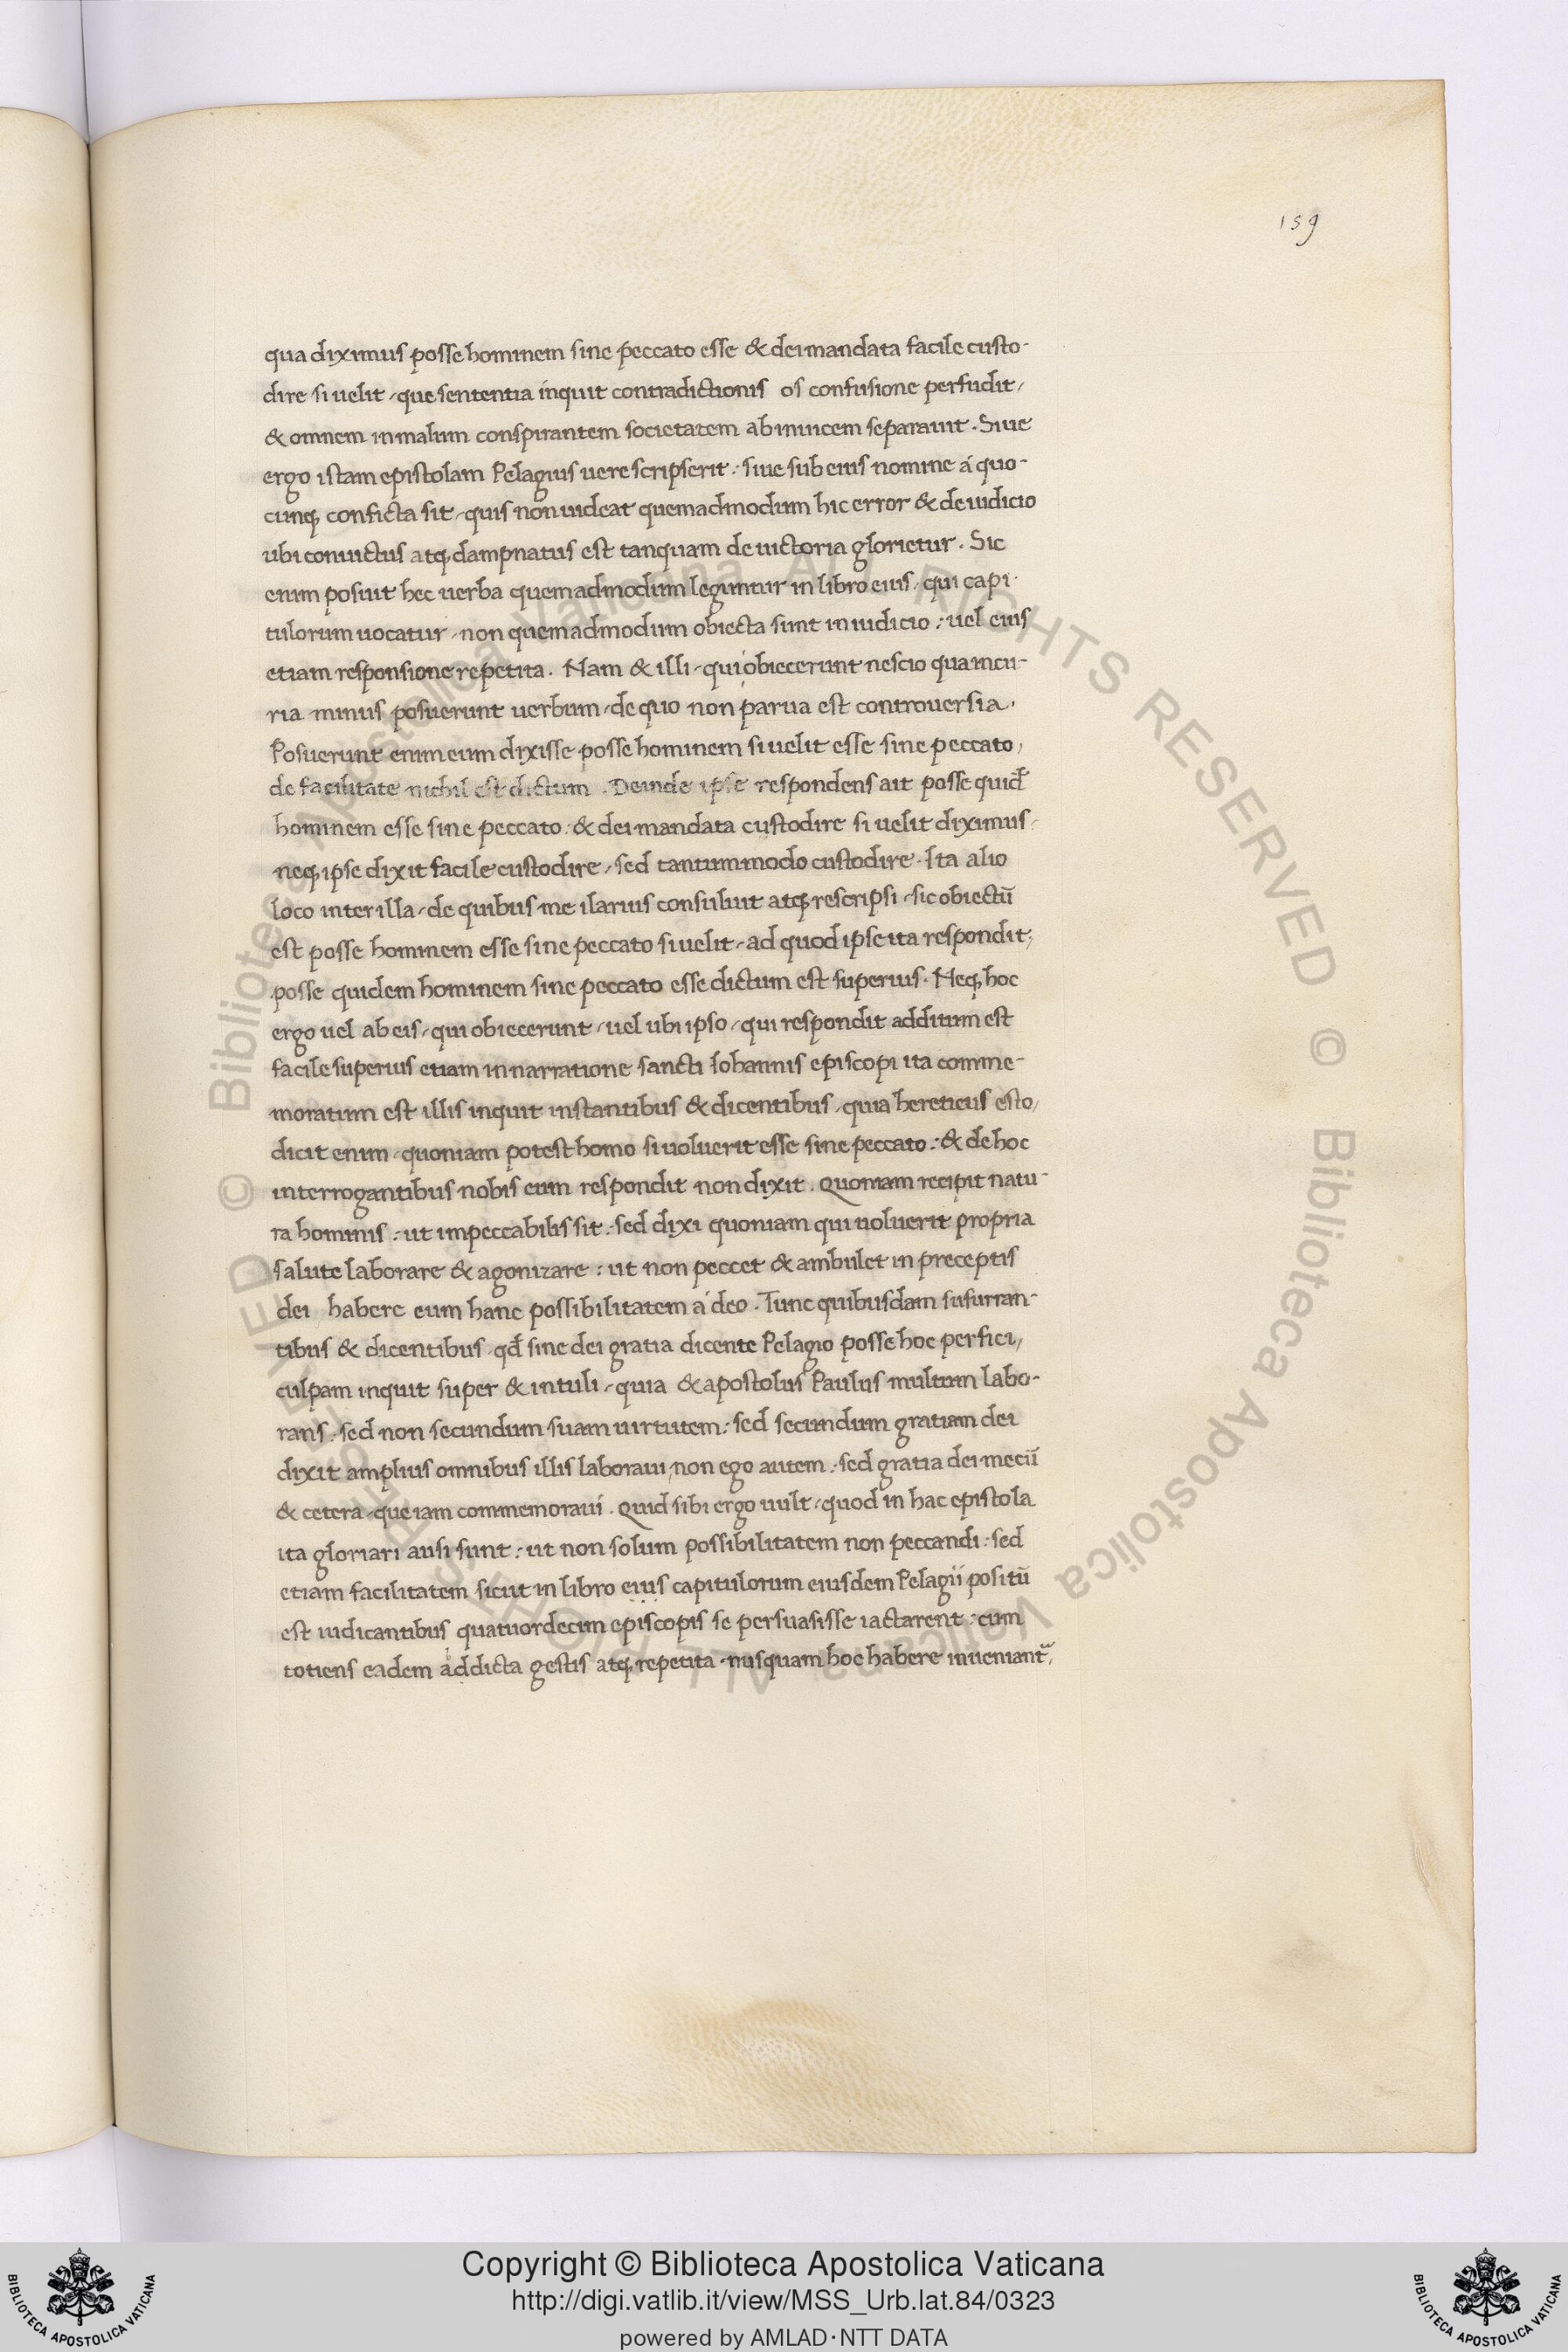 159
qua diximus posse hominem sine peccato esse & dei mandata facile custo-
dire si uelit, que sententia inquit contradictionis os confusione perfudit,
& omnem in malum conspirantem societatem ab inuicem separauit. Siue
ergo istam epistolam Pelagius uere scripserit: siue sub eius nomine á quo-
cunq; conficta sit, quis non uideat quemadmodum hic error & de iudicio
ubi conuictus atq; dampnatus est tanquam de uictoria glorietur. Sic
enim posuit hec uerba quemadmodum leguntur in libro eius, qui capi-
tulorum uocatur, non quemadmodum obiecta sunt in iudicio: uel eius
etiam responsione repetita. Nam & illi, qui obiecerunt nescio qua incu-
ria minus posuerunt uerbum, de quo non parua est controuersia.
Posuerunt enim eum dixisse posse hominem si uelit esse sine peccato,
de facilitate nichil est dictum. Deinde ipse respondens ait posse quid̄
hominem esse sine peccato. & dei mandata custodire si uelit diximus.
neq; ipse dixit facile custodire, sed tantummodo custodire. Ita alio
loco inter illa, de quibus me ilarius consuluit atq; rescripsi, sic obiectū
est posse hominem esse sine peccato si uelit, ad quod ipse ita respondit;
posse quidem hominem sine peccato esse dictum est superius. Neq; hoc
ergo uel ab eis, qui obiecerunt, uel ubi ipso, qui respondit additum est
facile superius etiam in narratione sancti Iohannis episcopi ita comme-
moratum est illis inquit instantibus & dicentibus, quia hereticus esto,
dicit enim, quoniam potest homo si uoluerit esse sine peccato: & de hoc
interrogantibus nobis eum respondit non dixit. Quoniam recipit natu-
ra hominis: ut impeccabilis sit: sed dixi quoniam qui uoluerit propria
salute laborare & agonizare: ut non peccet & ambulet in preceptis
dei habere eum hanc possibilitatem á deo. Tunc quibusdam susurran-
tibus & dicentibus, qd̄ sine dei gratia dicente Pelagio posse hoc perfici,
culpam inquit super & intuli, quia & apostolus Paulus multum labo-
rans: sed non secundum suam uirtutem: sed secundum gratiam dei
dixit amplius omnibus illis laboraui, non ego autem: sed gratia dei mecū
& cetera, que iam commemoraui. Quid sibi ergo uult, quod in hac epistola
ita gloriari ausi sunt: ut non solum possibilitatem non peccandi: sed
etiam facilitatem sicut in libro eius capitulorum eiusdem Pelagii positū
est iudicantibus quatuordecim episcopis se persuasisse iactarent: cum
totiens eadem addicta gestis atq; repetita, nusquam hoc habere inueniant᷑,
© Biblioteca Apostolica Vaticana. ALL RIGHTS RESERVED © Biblioteca Apostolica Vaticana. ALL RIGHTS RESERVED
Copyright © Biblioteca Apostolica Vaticana
http://digi.vatlib.it/view/MSS_Urb.lat.84/0323
powered by AMLAD·NTT DATA
BIBLIOTECA APOSTOLICA VATICANA
BIBLIOTECA APOSTOLICA VATICANA